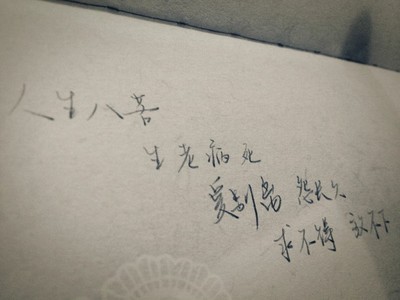 人生八苦
生老病死
爱别离 怨长久
求不得 放不下